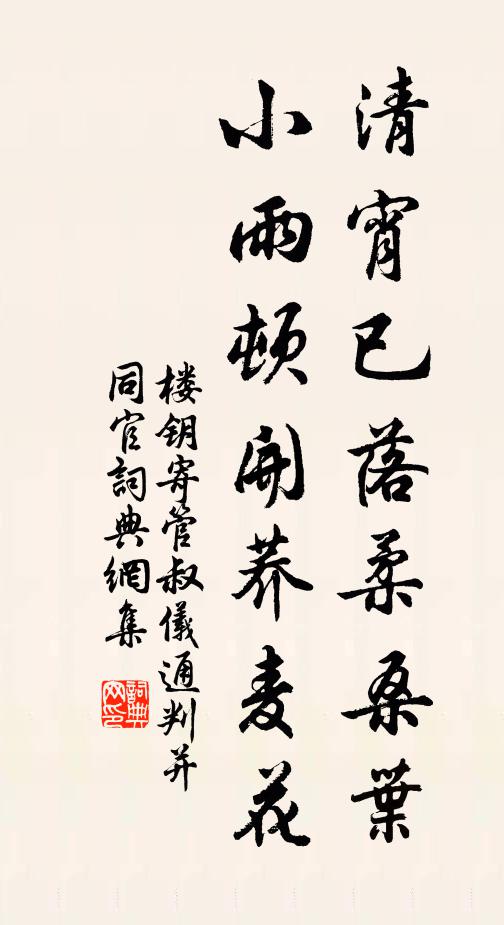 清宵已落柔桑葉
小雨頓開荞麦花
楼钥寄管叔儀通判并
同官詞典網集
詞典
网印